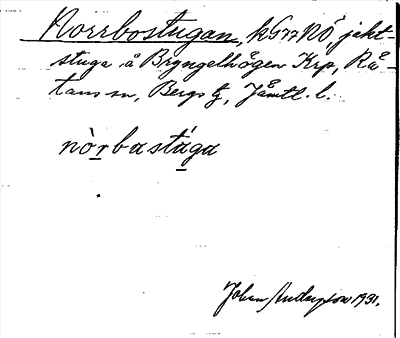 Norrbostugan, kG77NÖ, jakt-
stuga å Bryngelhögen Krp, Rå-
tans sn, Bergs tg, Jämtl. l.
nòrbastúga
Johan Anderson 1931.